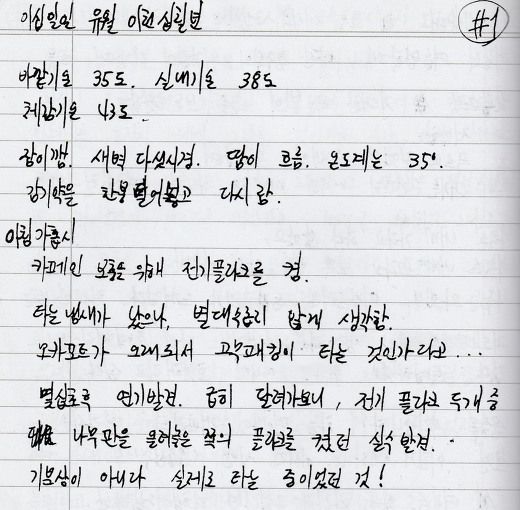 이십일인 유월 이런 십일번
#1
바깥기온 35도. 실내기온 38도
체감기온 43도.
잠이깸. 새벽 다섯시경. 땀이 흐름. 온도계는 35°.
감기약을 한봉 털어넣고 다시 잠.
아침 가홉시
카페인 보충을 위해 전기플라크를 켬.
타는냄새가 났으나, 별대수롭지 않게 생각함.
모카포트가 오래되서 고무패킹이 타는 것인가라고...
몇십초후 연기발견. 급히 달려가보니, 전기 플라크 두개 중
나무판을 올려놓은 쪽의 플라크를 켰던 실수 발견.
기분상이 아니라 실제로 타는 중이었던 것!